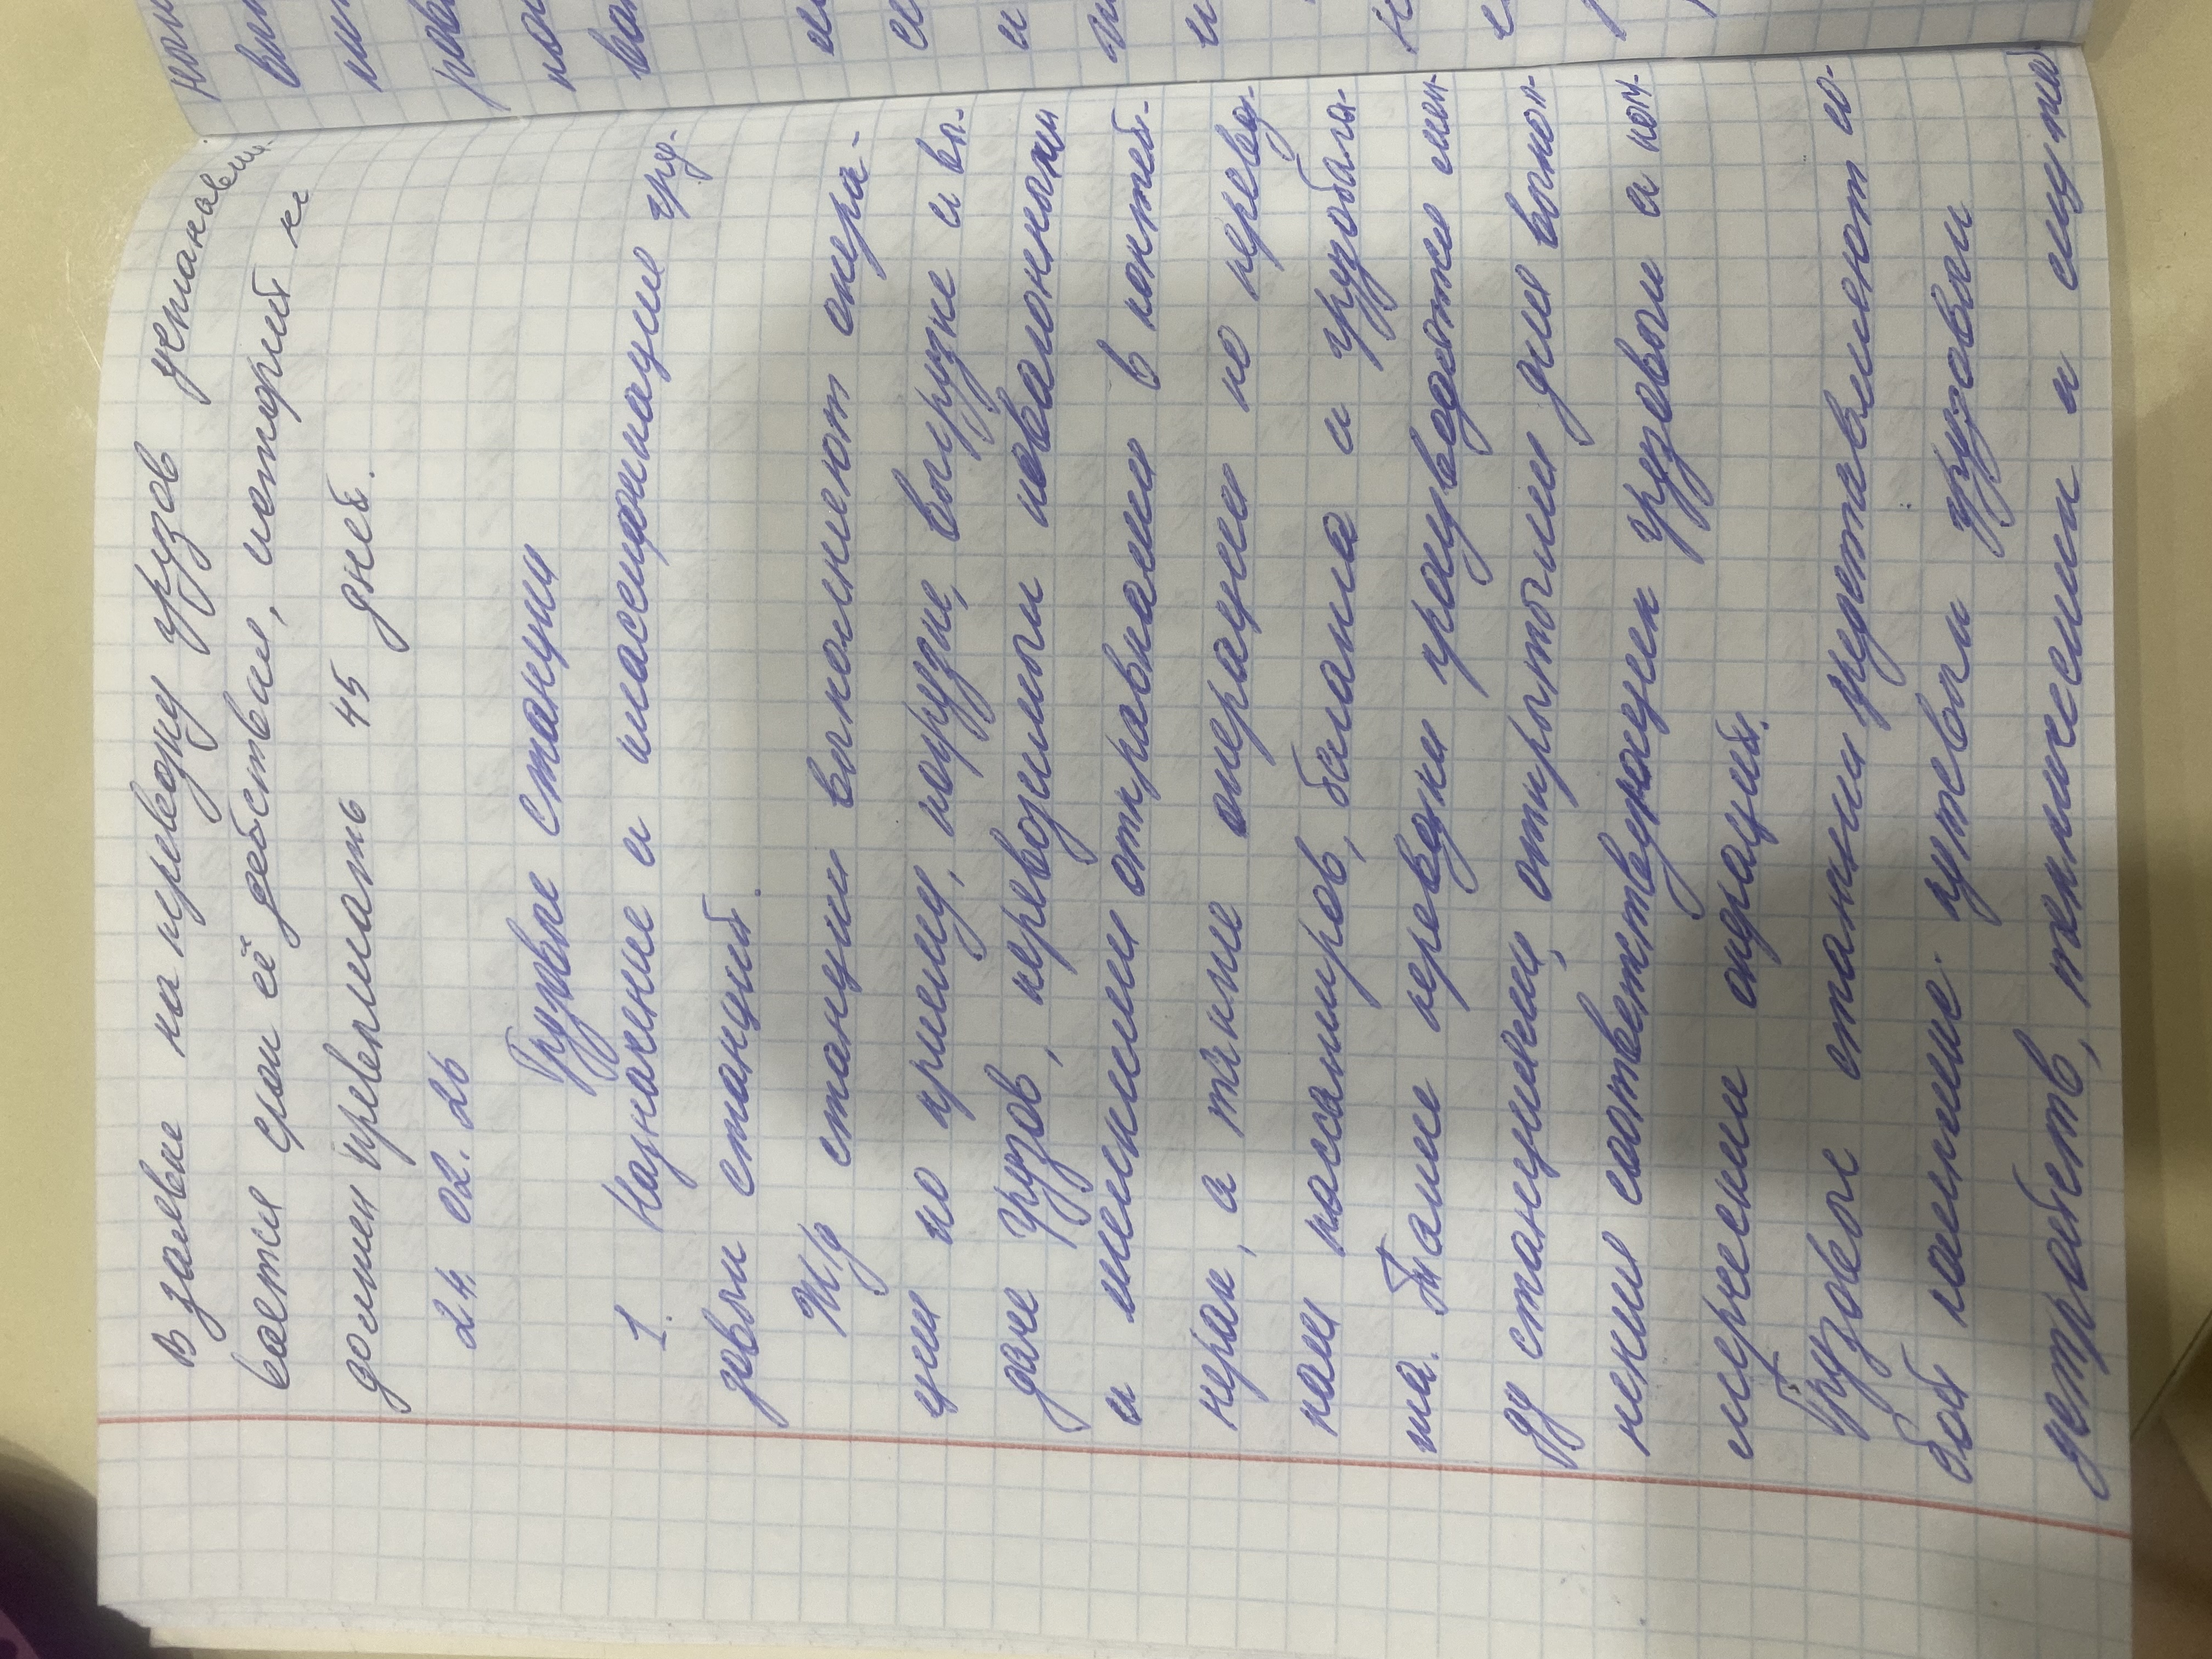 В заявке на перевозку грузов устанавли-
вается срок её действия, который не
должен превышать 45 дней.
24. 02. 26
Грузовые станции
1. Назначение и классификация гру-
зовых станций.
Ж/д станции выполняют опера-
ции по приему, погрузке, выгрузке и вы-
даче грузов, перевозимых повагонными
и мелкими отправками в контей-
нерах, а также операции по перевоз-
кам пассажиров, багажа и грузобага-
жа. Такие перевозки производятся меж-
ду станциями, открытыми для выпол-
нения соответствующих грузовых и ком-
мерческих операций.
Грузовые станции представляют со-
бой комплекс путевых грузовых
устройств, технических и служеб